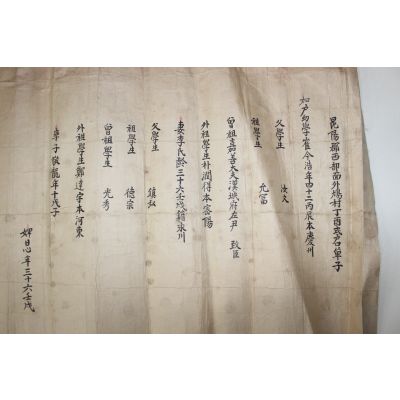 邑陽郡西部面外鳩村丁酉式名單子
幼學崔令浩年四十二丙辰本慶州
父學生 汝久
祖學生 允富
曾祖嘉善大夫漢城府左尹 致臣
外祖學生朴潤得本密陽
妻李氏齡三十六壬戌籍永川
父學生 鎮弘
祖學生 德宗
曾祖學生 光秀
外祖學生鄭達宇本河東
率子敬龍年十戊子
婢日心年三十六壬戌